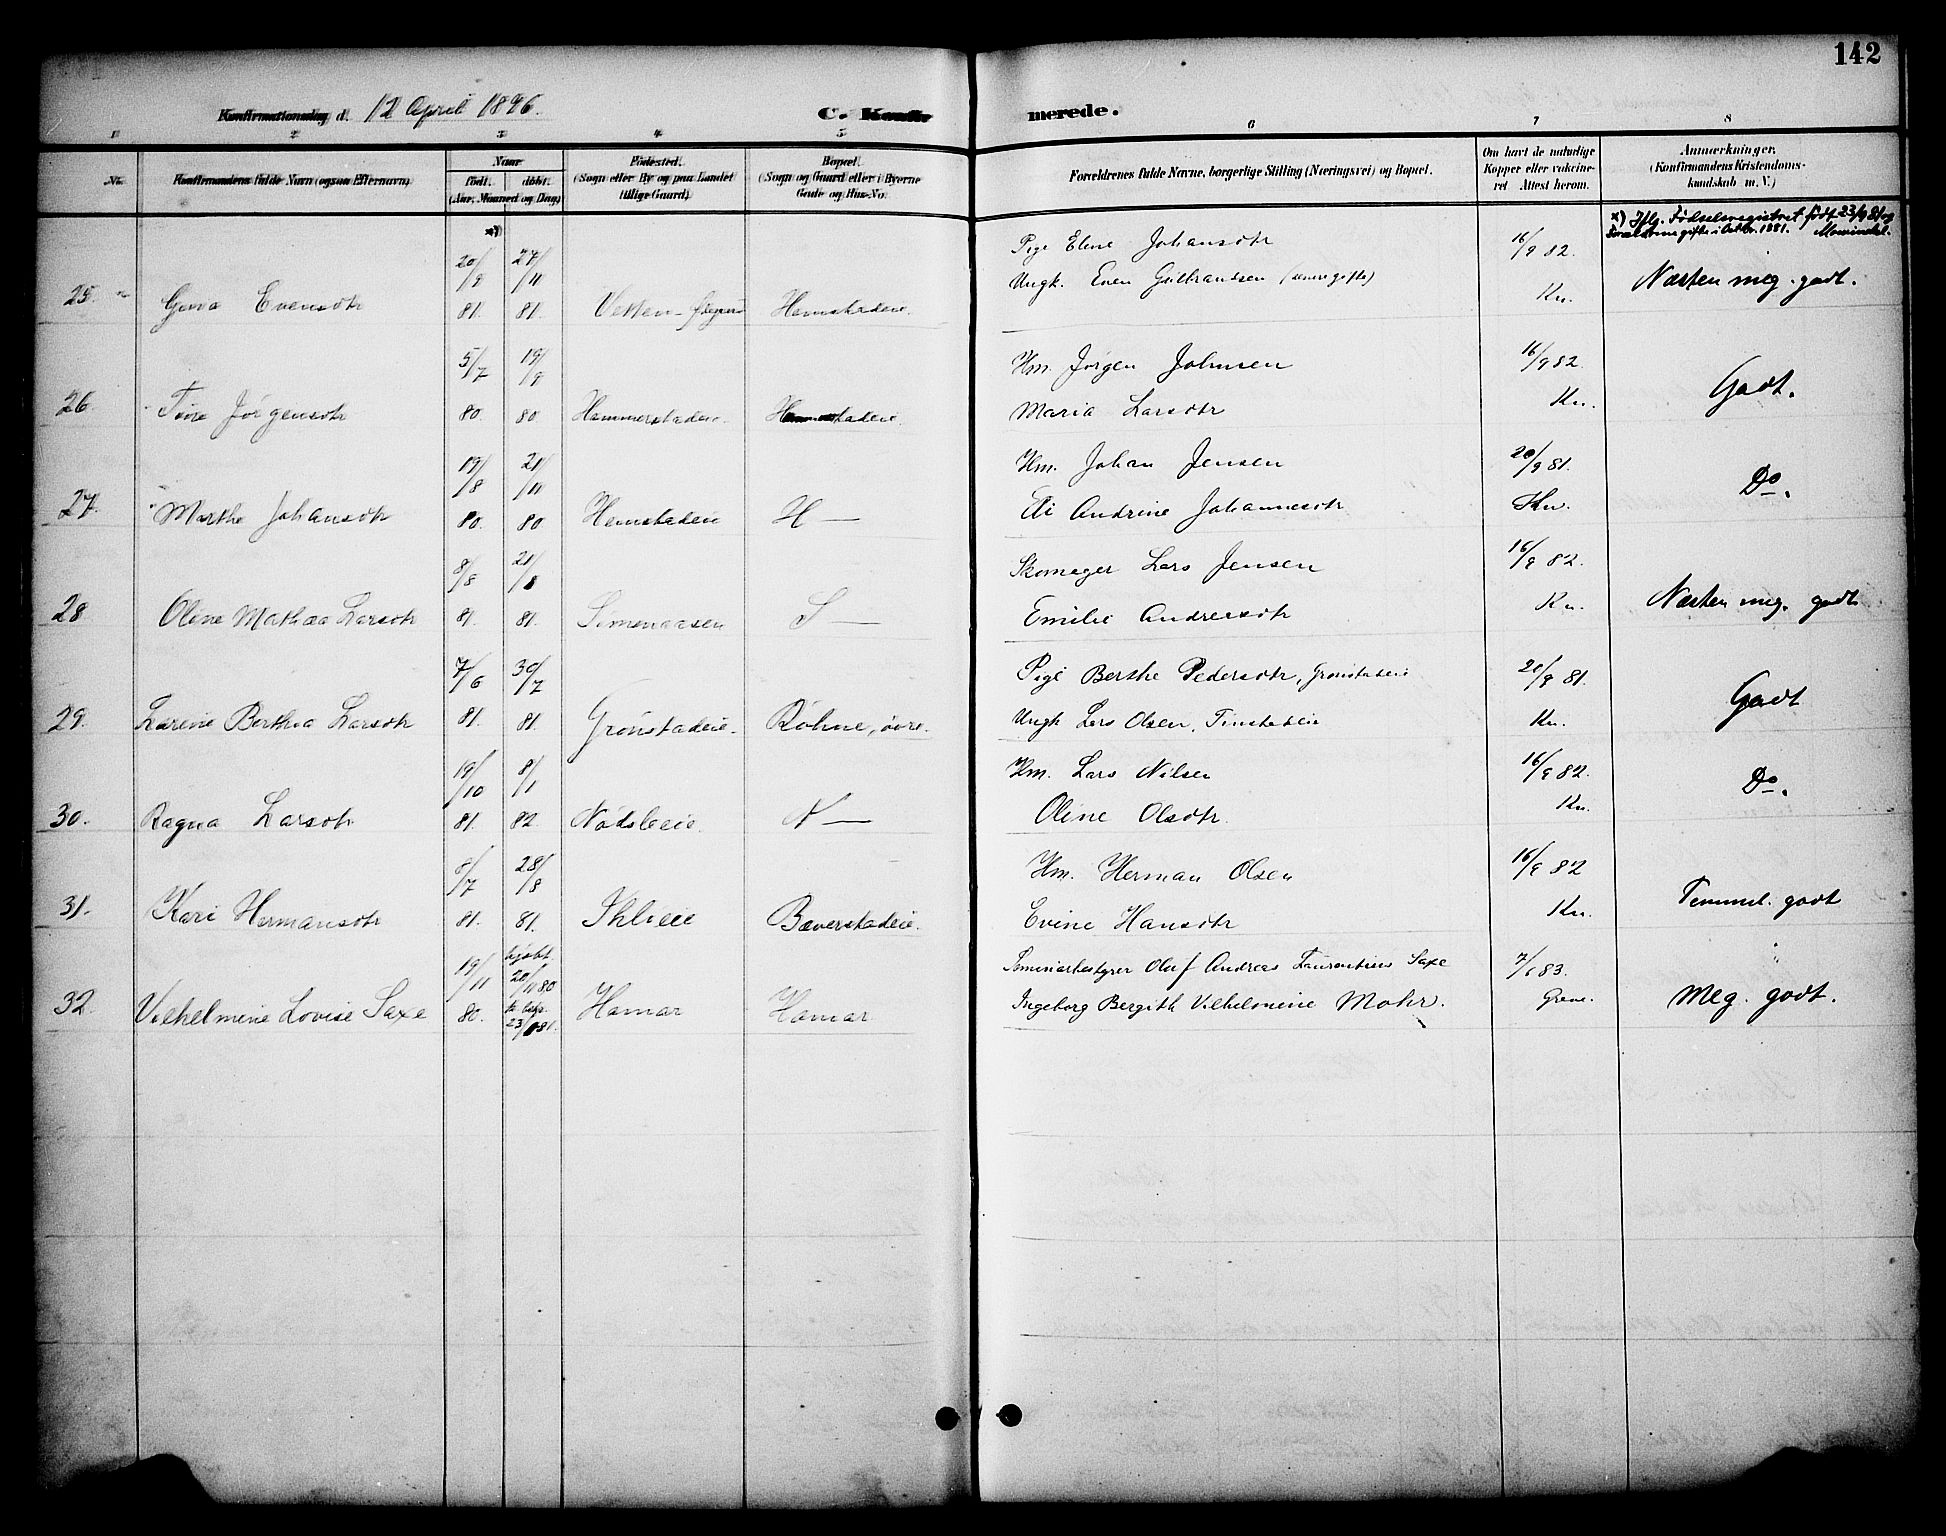 142
Konfirmationsdag d. 12 April 1896.
C. Konfir merede.
1 2 3 4 5 6 7 8
No. Konfirmandens fulde Navn (ogsaa Efternavn) Naar født. døbt. (Aar, Maaned og Dag) Fødested. (Sogn eller By og paa Landet tillige Gaard) Bopæl. (Sogn og Gaard eller i Byerne Gade og Hus-No. Forældrenes fulde Navne, borgerlige Stilling (Næringsvei) og Bopæl. Om havt de naturlige Kopper eller vakcineret. Attest herom. Anmærkninger. (Konfirmandens Kristendomskundskab m. V.)
x) Iflg. Fødselsregistret født 23/9 81 og
Forældrene gifte i Octbr. 1881.
x)
20/9 27/11 Pige Eline Johansdtr 16/9 82.
Ungk. Even Gulbrandsen (senere gifte) Næsten meg. godt.
25. Evensdtr 81. 81. Hemstadeie. Kn.
5/7 19/9 Hm. Jörgen Johnsen 16/9 82.
26 Jörgensdtr 80. 80. Hammerstadeie. Maria Larsdtr Kn. Godt.
19/8 21/11 Hm. Johan Jensen 20/9 81.
27. Marthe Johansdtr 80. 80. Hemstadeie H — Andrine Johannesdtr Kn. Do.
8/8 21/8 Skomager Lars Jensen 16/9 82.
28 Oline Mathea Larsdtr 81. 81. Simenaasen S — Emilie Andreasdtr Kn. Næsten meg. godt
7/6 30/7 Pige Berthe Pedersdtr, Grönstadeie 20/9 81.
29. Larine Berthea Larsdtr 81. 81. Grönstadeie. Röhne, övre. Ungk Lars Olsen, Kn. Godt
19/10 8/1 Hm. Lars Nilsen 16/9 82.
30. Ragna Larsdtr 81. 82. N — Oline Olsdtr. Kn. Do.
/7 28/8 Hm. Herman Olsen 16/9 82
31. Kari Hermansdtr 81. 81. Bæverstadeie. Evine Hansdtr Kn. Temmel. godt
19/11 hjdbt. 20/11 80 Seminarbestyrer Oluf Andreas Laurentius Saxe 7/ 83.
32. Vilhelmine Lovise Saxe 80. Hamar Hamar Ingeborg Bergith Vilhelmine Mohr. Greve. Meg. godt.